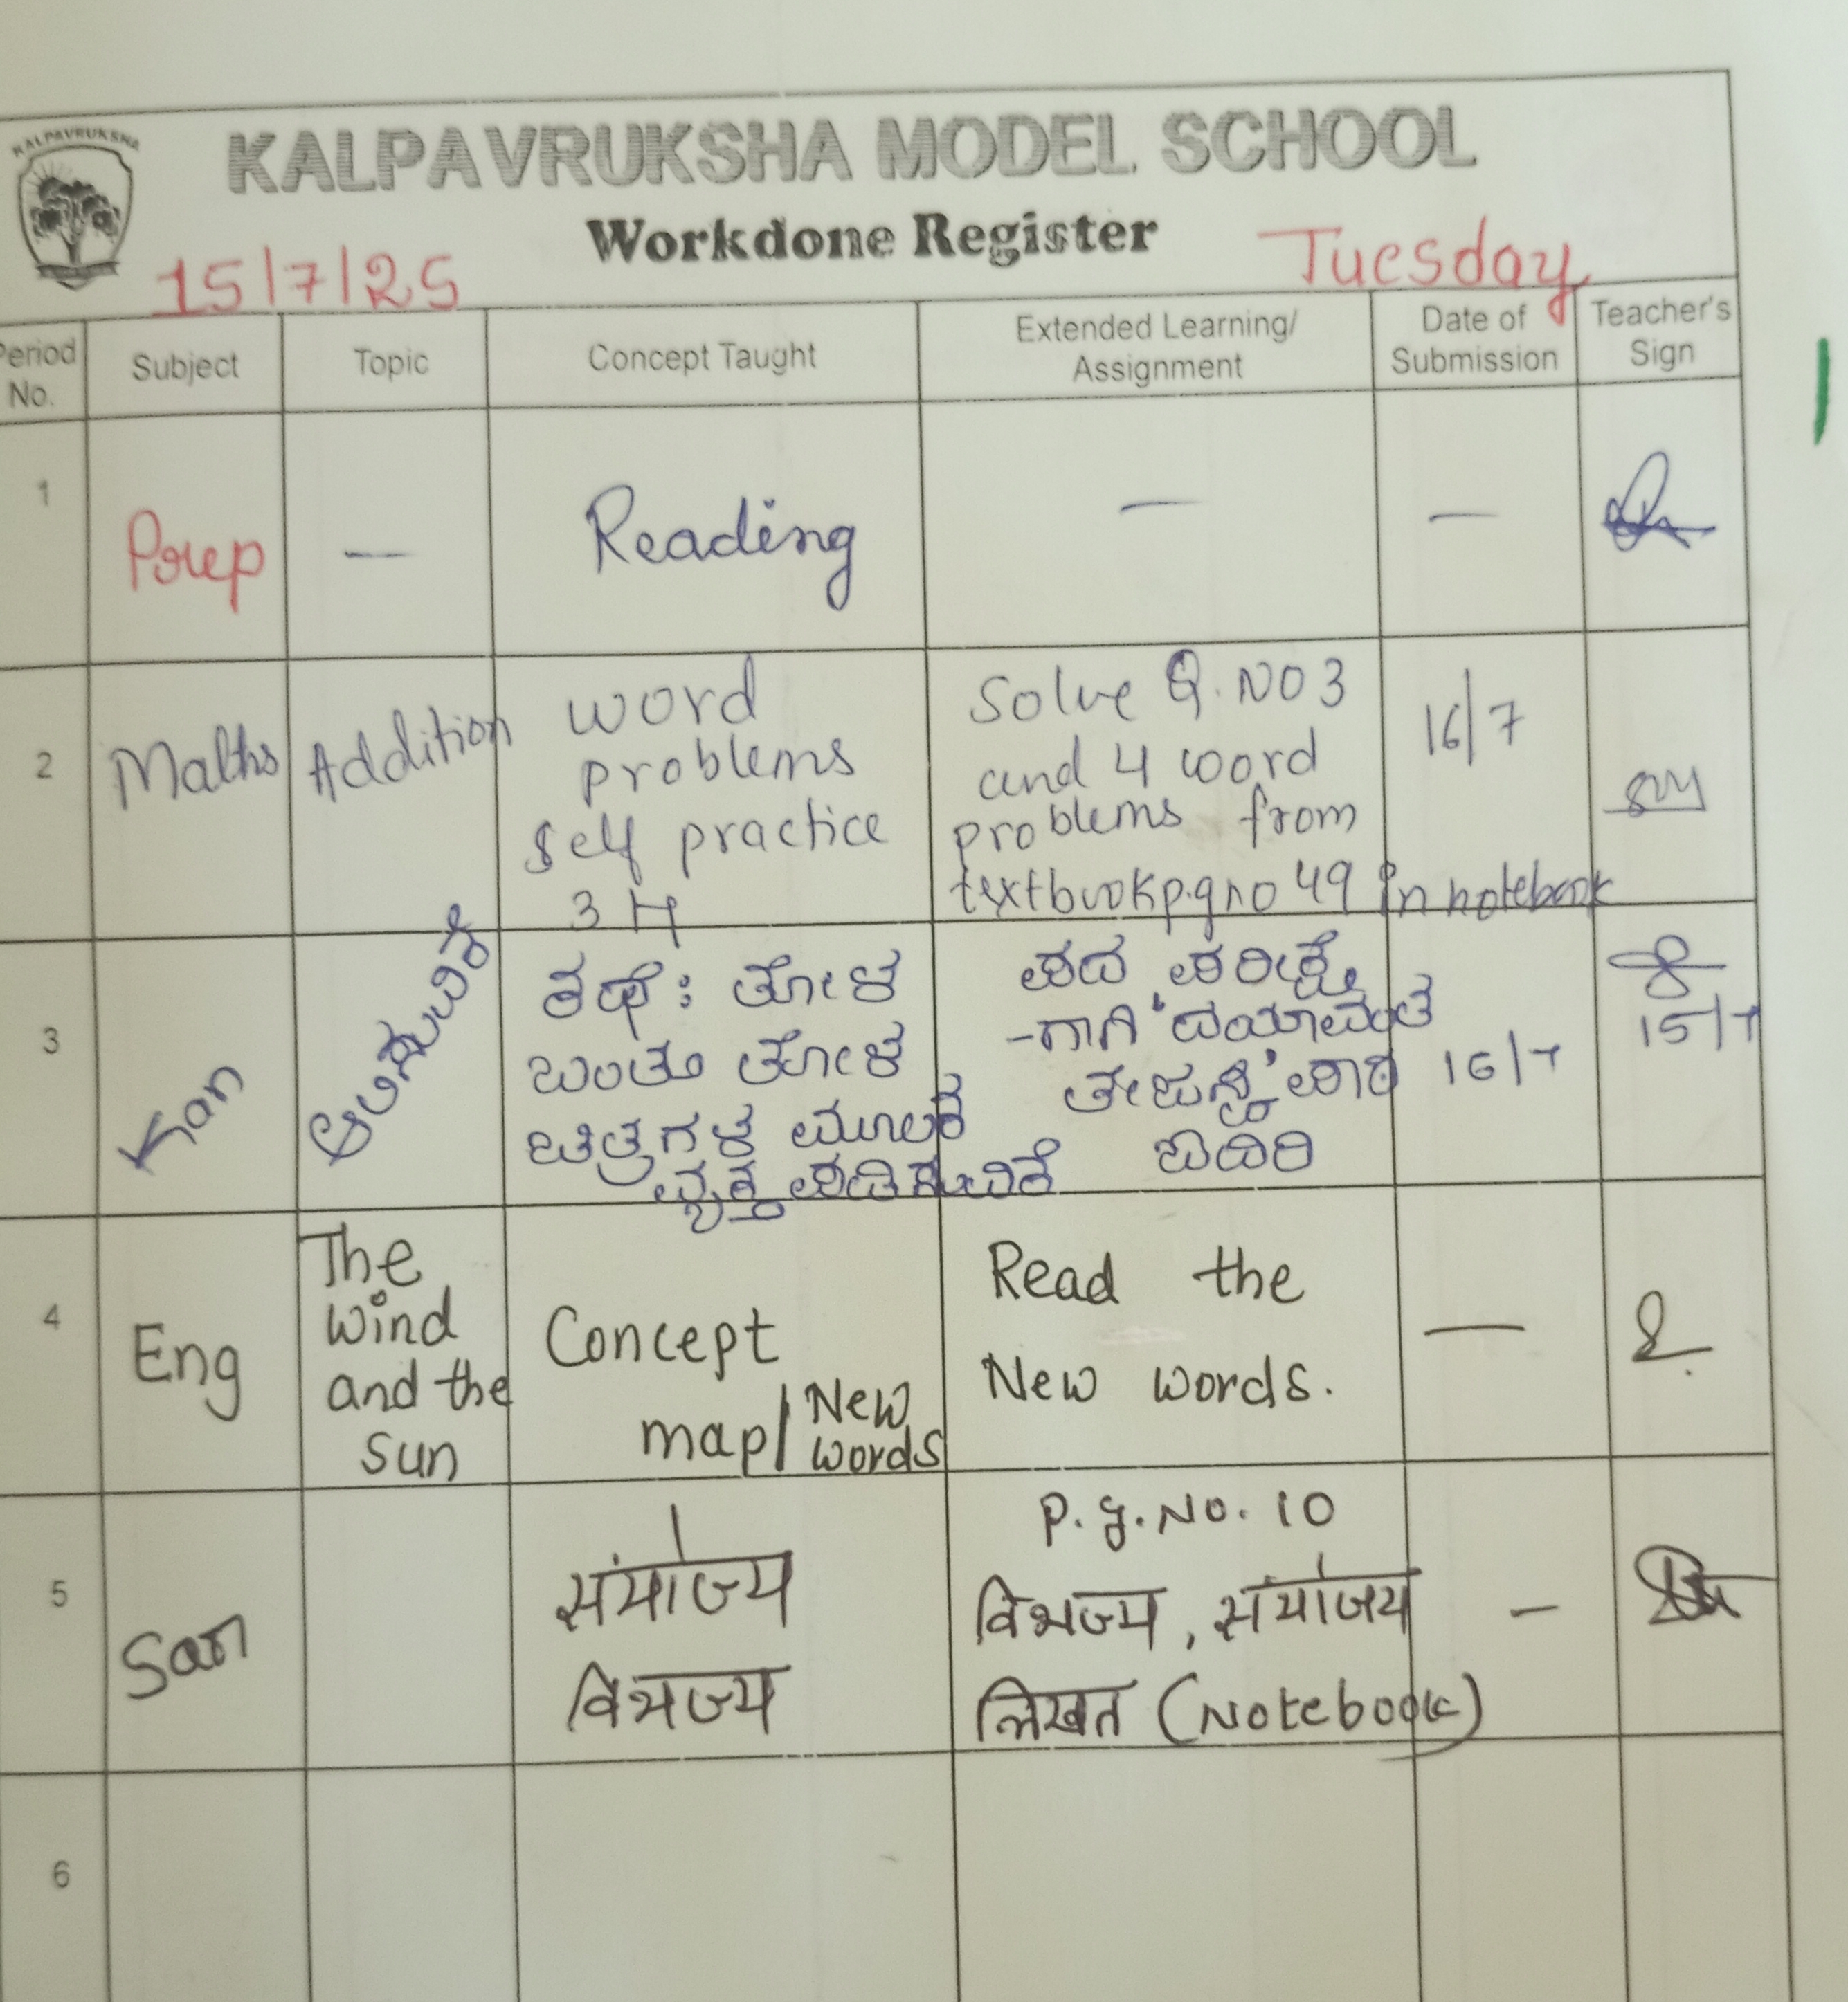 KALPAVRUKSHA
KALPAVRUKSHA MODEL SCHOOL
Workdone Register
15/7/25 Tuesday
Period No. Subject Topic Concept Taught Extended Learning/ Assignment Date of Submission Teacher's Sign
1 Prep — Reading — —
2 Maths Addition
word
problems
self practice
3 H
Solve Q. NO 3
and 4 word
problems from
textbook p.g no 49 in notebook
16/7
3 Kan
ಆಲಿಸುವಿಕೆ
ಕಥೆ: ತೋಳ
ಬಂತು ತೋಳ
ಚಿತ್ರಗಳ ಮೂಲಕ
ವ್ಯಕ್ತಪಡಿಸುವಿಕೆ
ಪದ ಪರೀಕ್ಷೆ
-ಗಾಗಿ 'ದಯಾವಂತ
ತೇಜಸ್ವಿ' ಪಾಠ
ಓದಿರಿ
16/7
15/7
4 Eng
The
Wind
and the
Sun
Concept
map/ New
words
Read the
New words.
—
5 San
संयोज्य
विभज्य
P.g. No. 10
विभज्य, संयोजय
लिखत (Notebook)
—
6